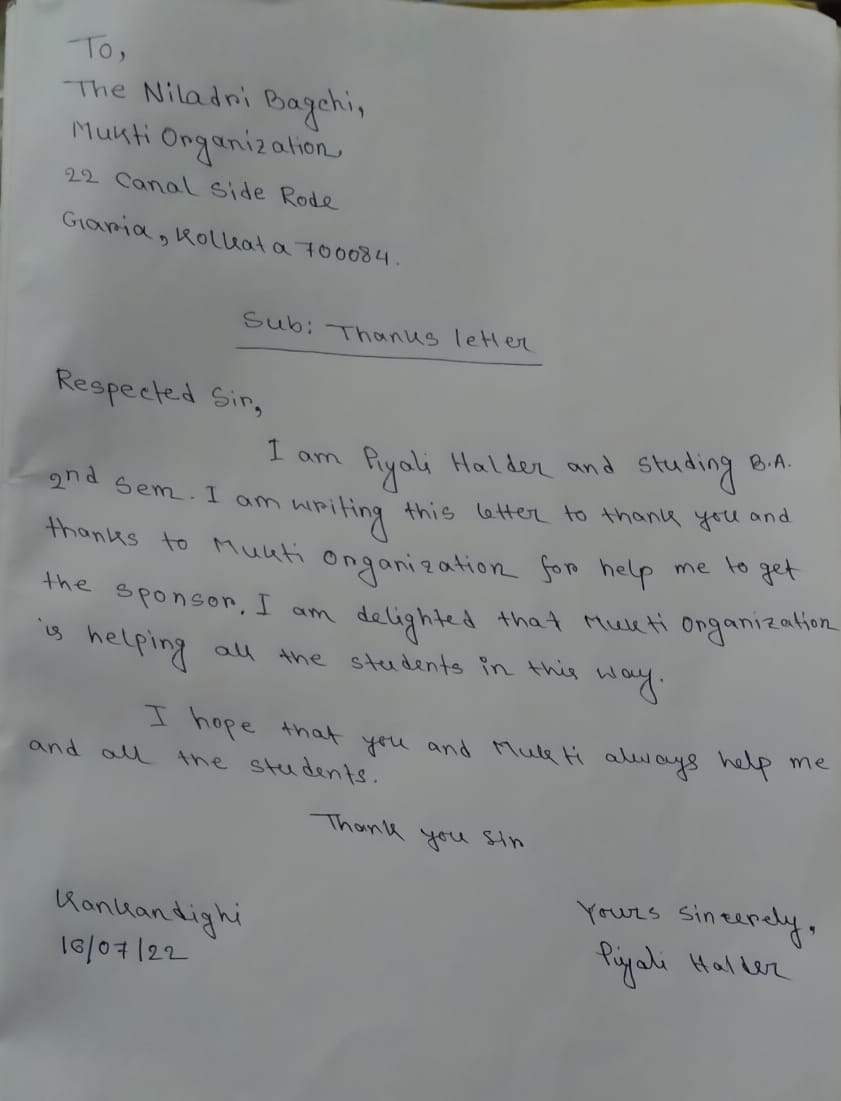 To,
The Niladri Bagchi,
Mukti Organization,
22 Canal Side Rode
Garia, Kolkata 700084.
Sub: Thanks letter
Respected Sir,
I am Piyali Halder and studing B.A.
2nd Sem. I am writing this letter to thank you and
thanks to Mukti Organization for help me to get
the sponsor. I am delighted that Mukti Organization
is helping all the students in this way.
I hope that you and Mukti always help me
and all the students.
Thank you Sir
Kankandighi
16/07/22
Yours Sincerely,
Piyali Halder